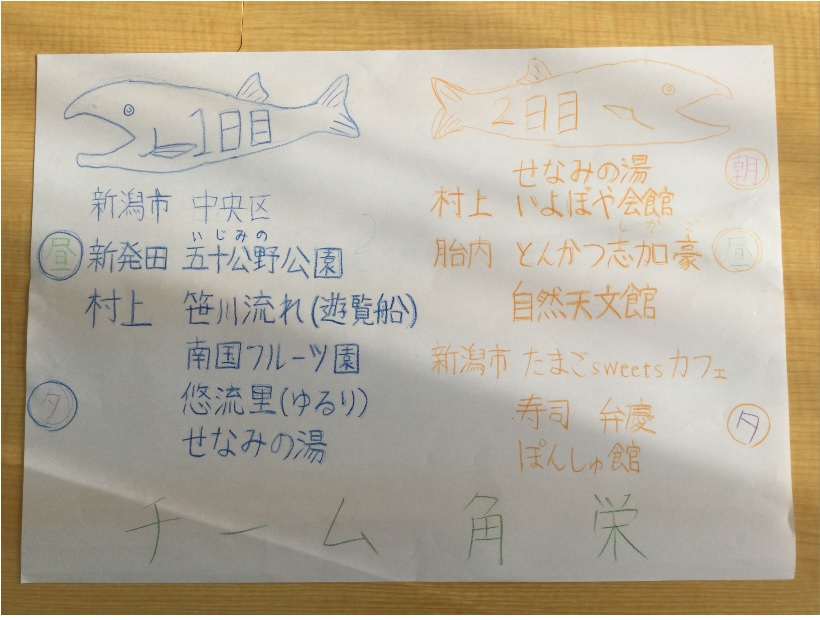 1日目
新潟市 中央区
いじみの
昼 新発田 五十公野公園
村上 笹川流れ(遊覧船)
南国フルーツ園
夕 悠流里(ゆるり)
せなみの湯
2日目
せなみの湯 朝
村上 いよぼや会館
しかご
胎内 とんかつ志加豪 昼
自然天文館
新潟市 たまごsweetsカフェ
寿司 弁慶 夕
ぽんしゅ館
チーム 角栄